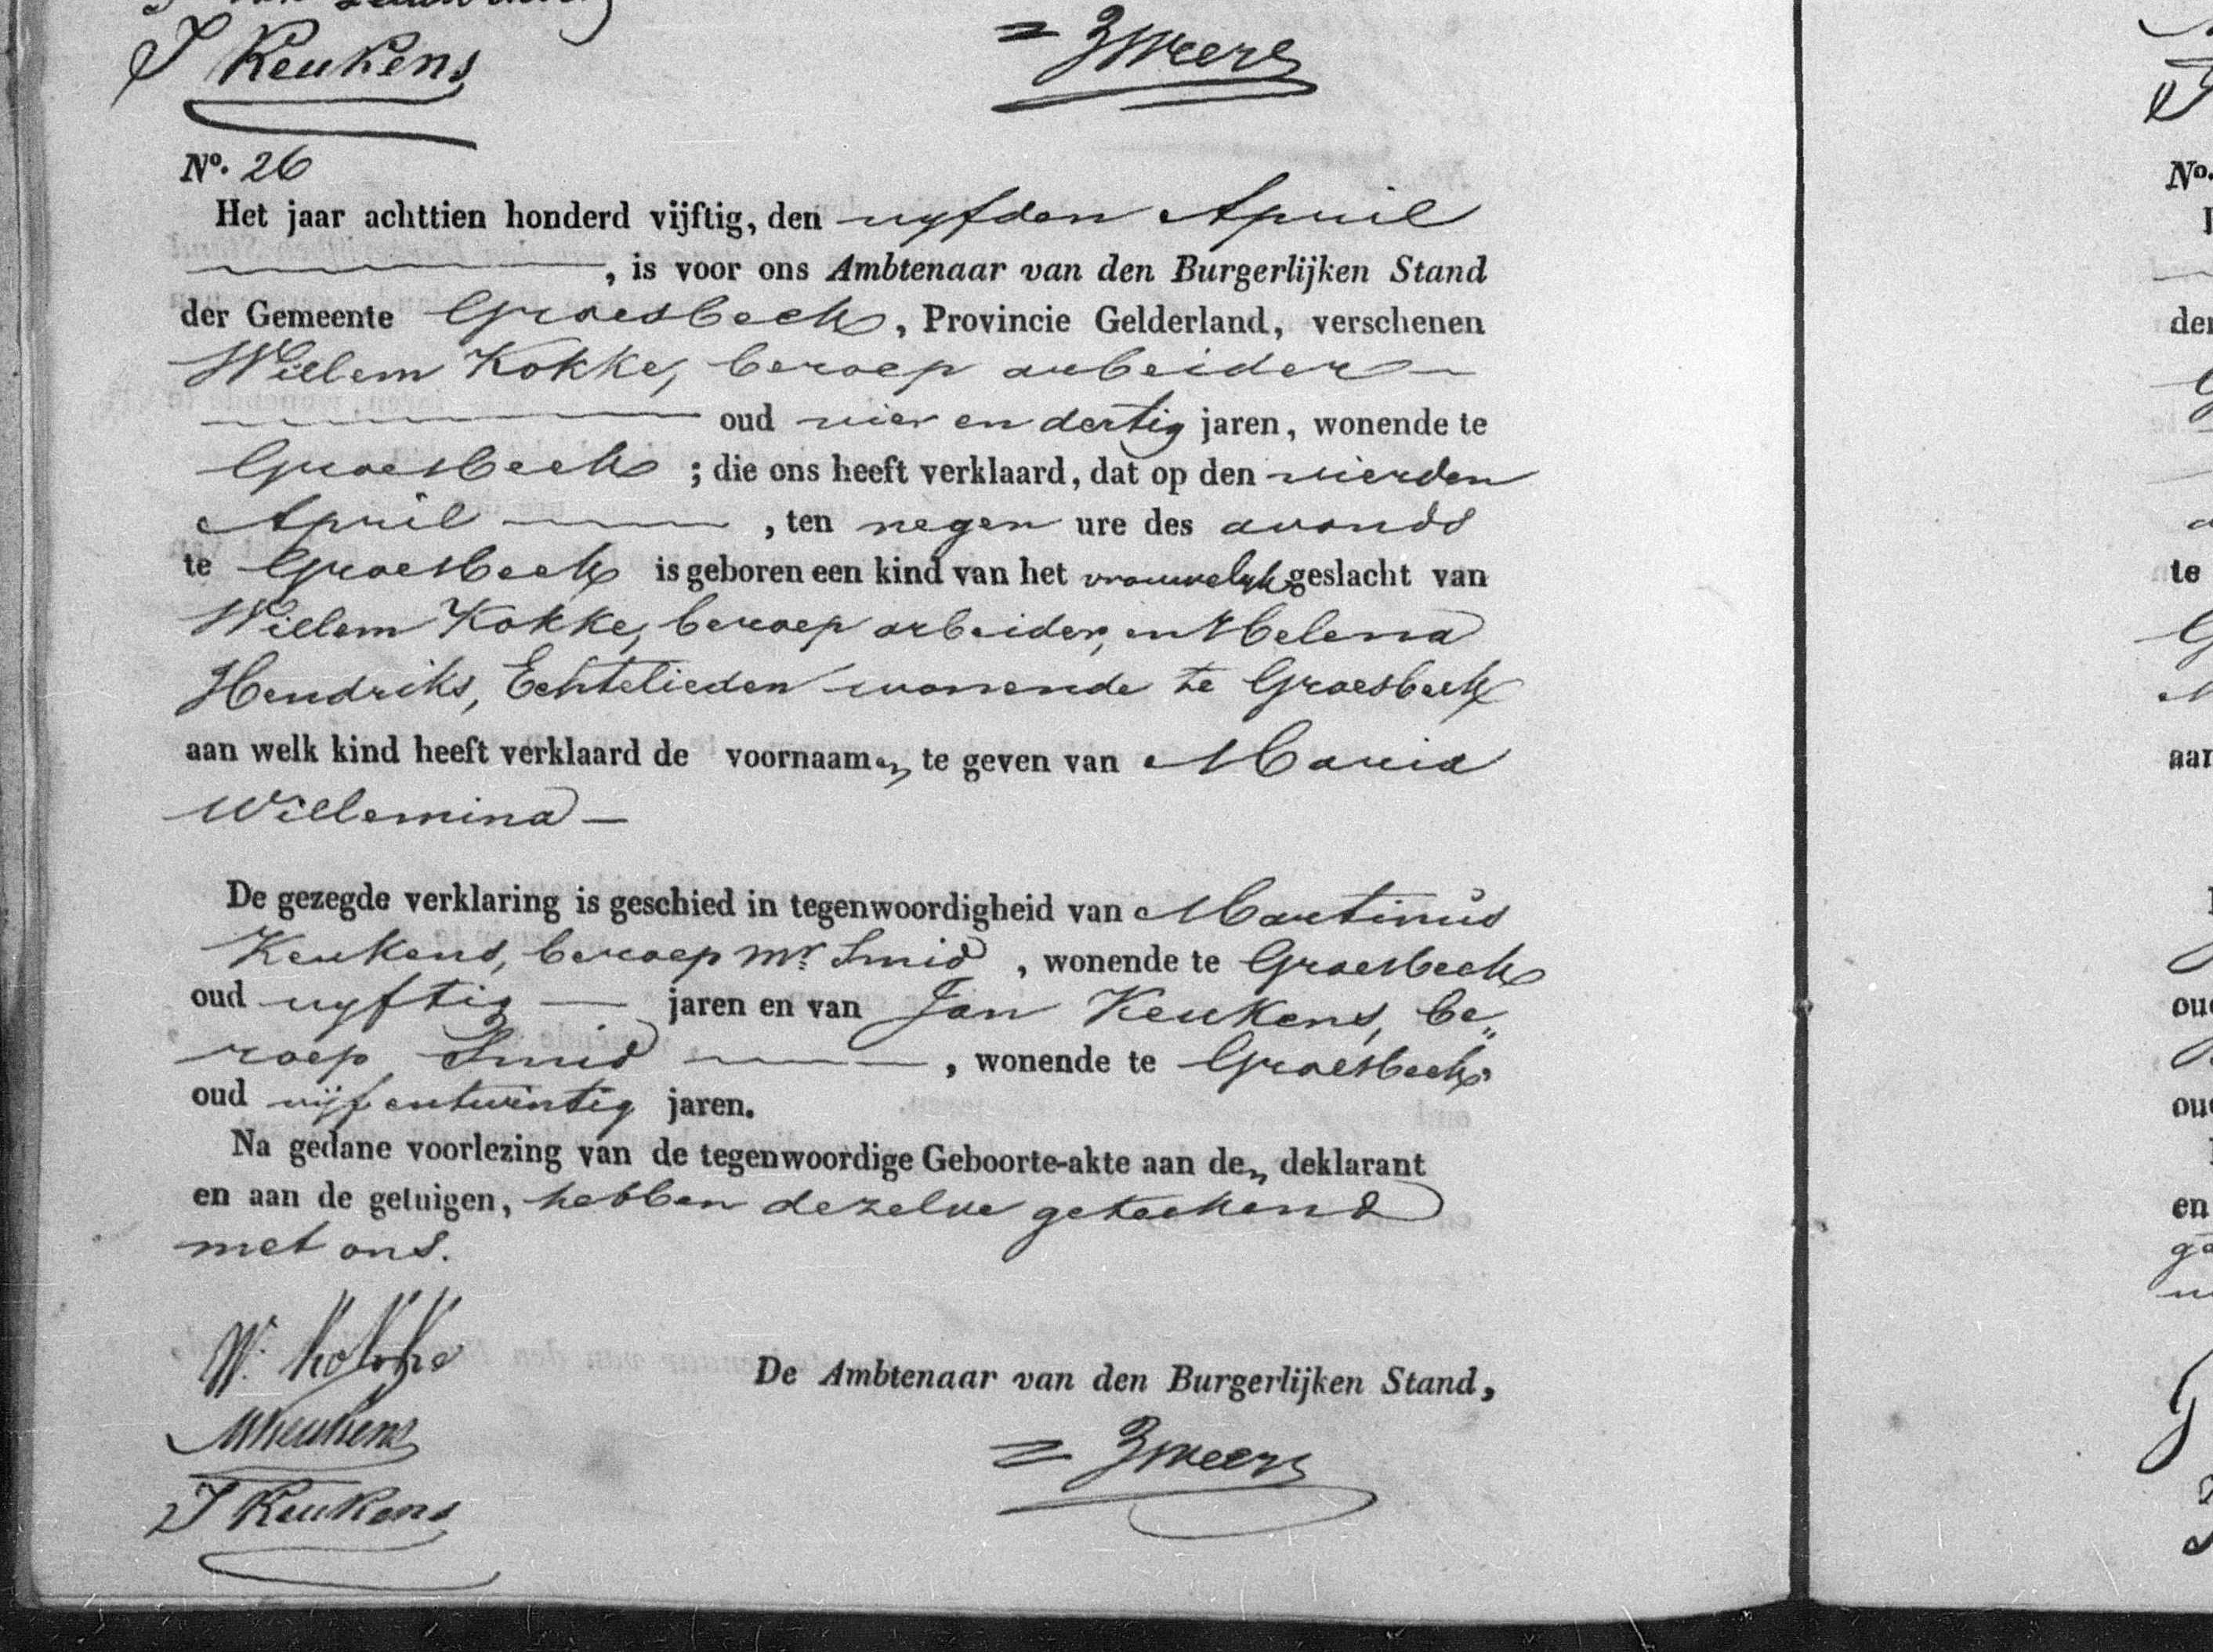 J Keukens
Zweers
No. 26
Het jaar achttien honderd vijftig, den vyfden April
, is voor ons Ambtenaar van den Burgerlijken Stand
der Gemeente Groesbeek, Provincie Gelderland, verschenen
Willem Kokke, beroep arbeider
oud vier en dertig jaren, wonende te
Groesbeek ; die ons heeft verklaard, dat op den vierden
April , ten negen ure des avonds
te Groesbeek is geboren een kind van het vrouwelyk geslacht van
Willem Kokke, beroep arbeider, en Helena
Hendriks, Echtelieden wonende te Groesbeek
aan welk kind heeft verklaard de voornaamen te geven van Maria
Willemina
De gezegde verklaring is geschied in tegenwoordigheid van Martinus
Keukens, beroep Mr. Smid , wonende te Groesbeek
oud vyftig jaren en van Jan Keukens, be„
roep Smid , wonende te Groesbeek,
oud vijfentwintig jaren.
Na gedane voorlezing van de tegenwoordige Geboorte-akte aan den deklarant
en aan de getuigen, hebben dezelve geteekend
met ons.
W. Kokke
De Ambtenaar van den Burgerlijken Stand,
MKeukens
Zweers
J Keukens
No.
te
en